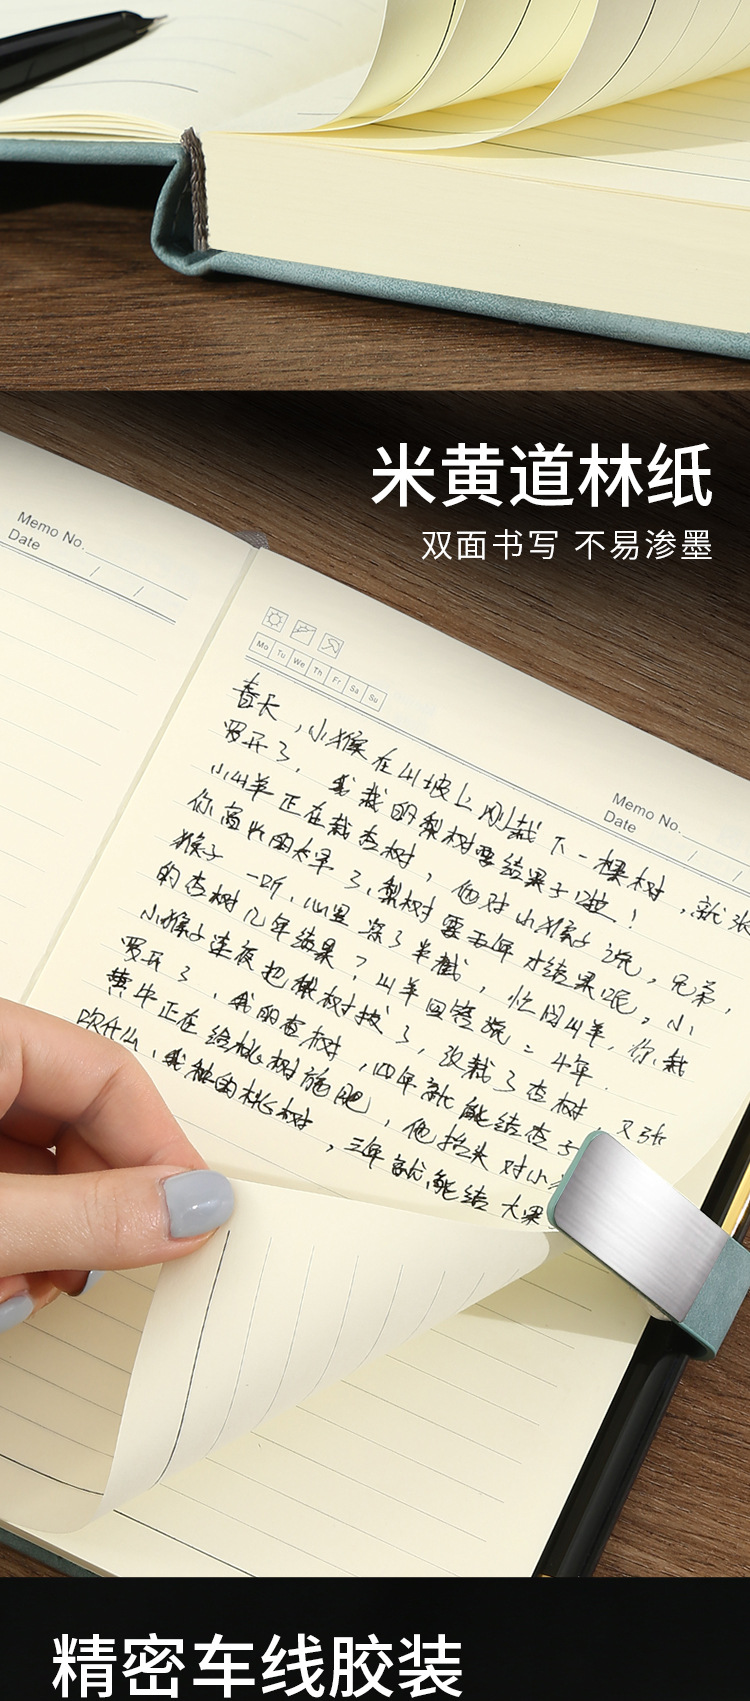 米黄道林纸
双面书写 不易渗墨
Memo No.
Date / /
Mo Tu We Th Fr Sa Su
Memo No.
Date / /
春天，小猴在山坡上刚栽下一棵树，就张
罗开了，我栽的梨树要结果子啦！
小山羊正在栽杏树，他对小猴子说，兄弟，
你高兴的太早了，梨树要五年才结果呢。小
猴子一听，心里凉了半截，忙问山羊，你栽
的杏树几年结果？山羊回答说：4年.
小猴子连夜把梨树拔了，改栽了杏树，又张
罗开了，我的杏树，四年就能结杏子
黄牛正在给桃树施肥，他抬头对小
吹什么，我种的桃树，三年就能结大果
精密车线胶装